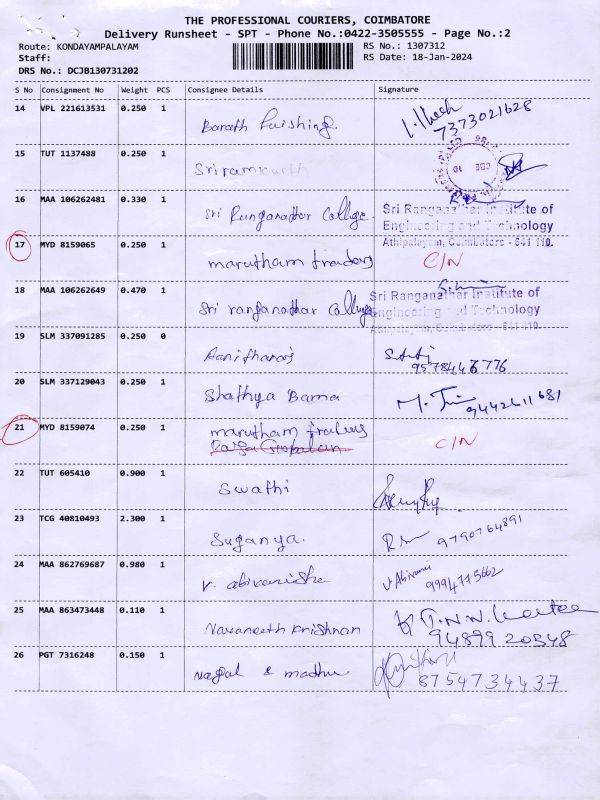 THE PROFESSIONAL COURIERS, COIMBATORE
Delivery Runsheet - SPT - Phone No.:0422-3505555 - Page No.:2
Route: KONDAYAMPALAYAM
RS No.: 1307312
Staff:
RS Date: 18-Jan-2024
DRS No.: DCJB130731202
S No Consignment No Weight PCS Consignee Details Signature
14 VPL 221613531 0.250 1 Barath
7373021628
15 TUT 1137488 0.250 1 Sriramkarth
16 MAA 106262481 0.330 1 Sri Ranganathar College
Sri Ranganathar Institute of
Engineering and Technology
Athipalayam, Coimbatore - 641 110.
17 MYD 8159065 0.250 1 marutham traders C/N
18 MAA 106262649 0.470 1 Sri ranganathar College
Sri Ranganathar Institute of
Engineering and Technology
Athipalayam, Coimbatore - 641 110.
19 SLM 337091285 0.250 0
9578446776
20 SLM 337129043 0.250 1 Shathya Bama
9442611681
21 MYD 8159074 0.250 1 marutham traders C/N
22 TUT 605410 0.900 1 Swathi
23 TCG 40810493 2.300 1 Suganya.
9790764891
24 MAA 862769687 0.980 1 V. abivarsha
V Abirami
9994775662
25 MAA 863473448 0.110 1 Navaneeth Krishnan
9489920348
26 PGT 7316248 0.150 1 & madhu
8754734437